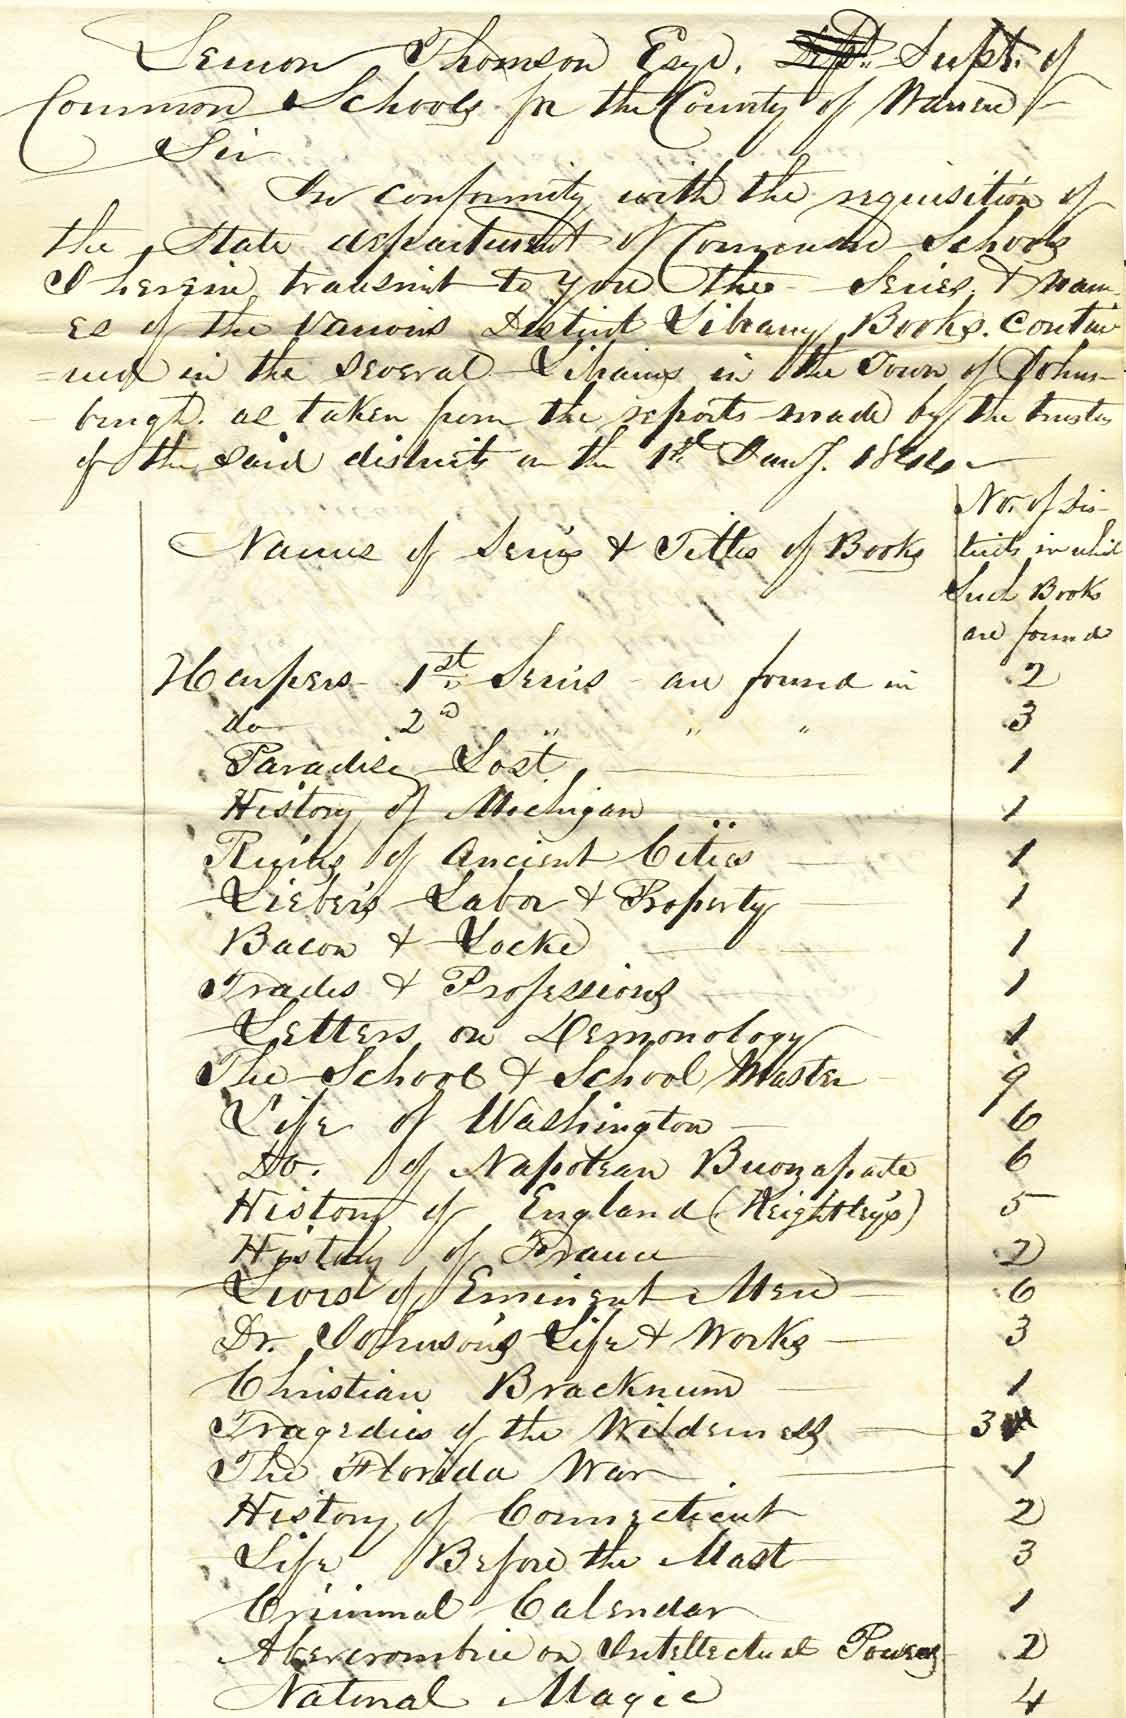 Lemon Thomson Esqr. Supt. of
Common Schools for the County of Warren
Sir
In conformity with the requisition of
the State department of Common Schools
I herein transmit to you the Series & nam-
es of the various District Library Books contai
=ned in the several Libraries in the Town of Johns-
burgh. as taken from the reports made by the trustees
of the said districts on the 1st Jany. 1844
No. of Dis-
Names of Series & Titles of Books tricts in which
Such Books
are found
Harpers 1st Series are found in 2
do 2nd " " " 3
Paradise Lost 1
History of Michigan 1
Ruins of Ancient Cities 1
Lieber's Labor & Property 1
Bacon & Locke 1
Trades & Professions 1
Letters on Demonology 1
The School & School Master 9
Life of Washington 6
Do. of Napolean Buonaparte 6
History of England (Keightley's) 5
History of France 2
Lives of Eminent Men 6
Dr. Johnson's Life & Works 3
Christian Bracknum 1
Tragedies of the Wilderness 3
The Florida War 1
History of Connecticut 2
Life Before the Mast 3
Criminal Calendar 1
Abercrombie on Intellectual Powers 2
Natural Magic 4